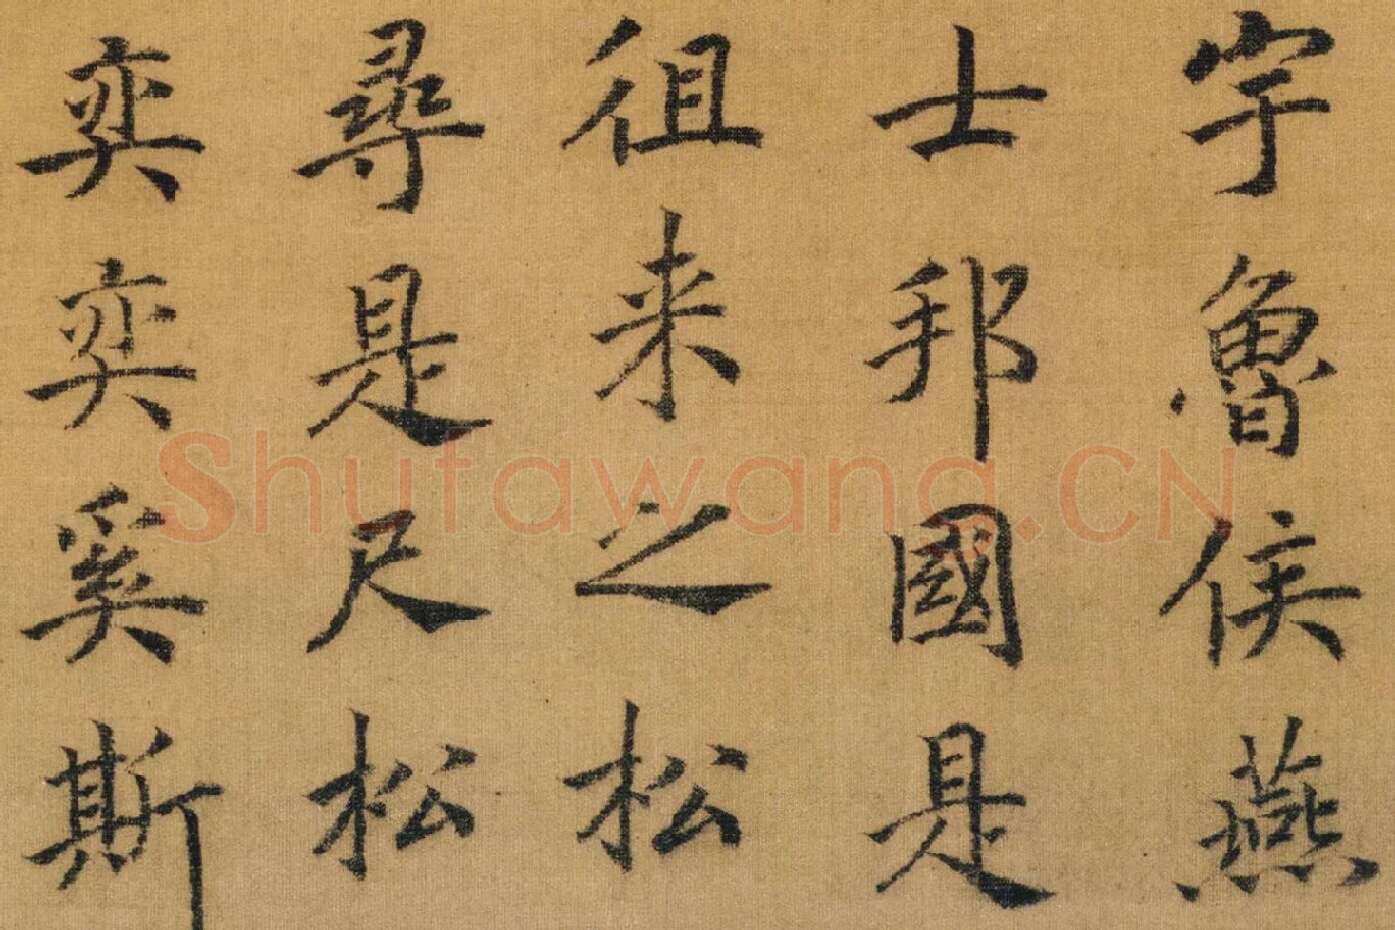 宇魯侯燕
士邦國是
徂来之松
尋是尺松
奕奕奚斯
Shufawang.CN